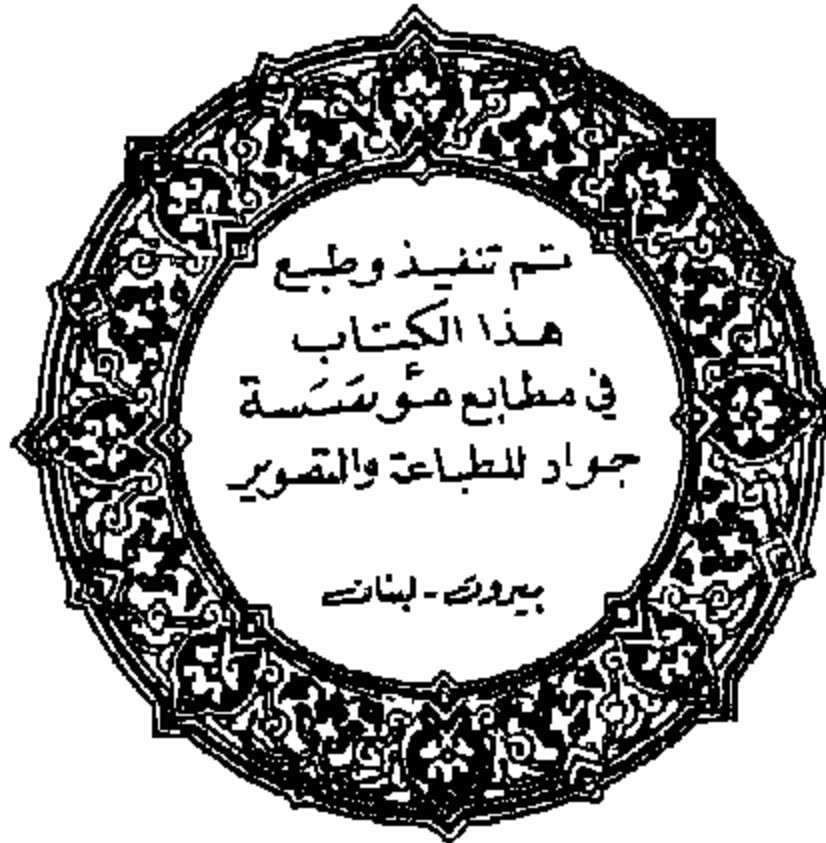 تم تنفيذ وطبع
هذا الكتاب
في مطابع مؤسَسَة
جواد للطباعة والتصوير
بيروت - لبنان